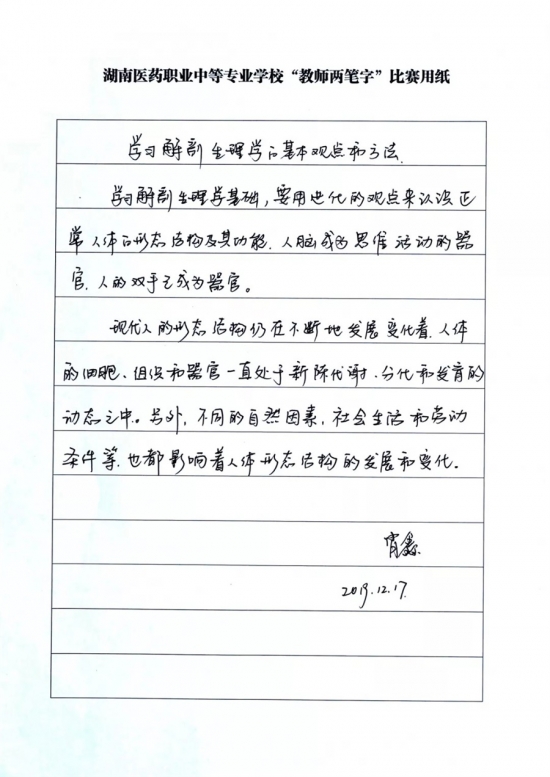 湖南医药职业中等专业学校“教师两笔字”比赛用纸
学习解剖生理学的基本观点和方法.
学习解剖生理学基础，要用进化的观点来认识正
常人体的形态结构及其功能.人脑成为思维活动的器
官.人的双手已成为器官。
现代人的形态结构仍在不断地发展变化着.人体
的细胞、组织和器官一直处于新陈代谢、分化和发育的
动态之中。另外，不同的自然因素，社会生活和劳动
条件等.也都影响着人体形态结构的发展和变化.
肖鑫
2019.12.17.